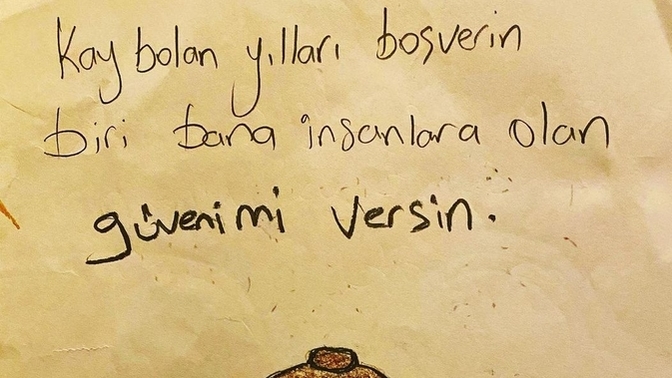 Kaybolan yılları boşverin
biri bana insanlara olan
güvenimi versin.